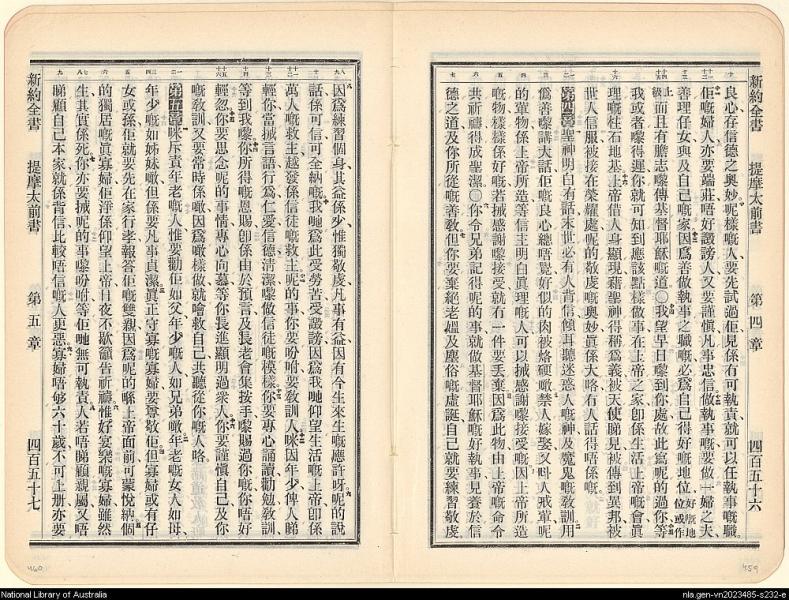 新約全書 提摩太前書 第四章 四百五十六
良心存信德之奧妙呢樣嘅人要先試過佢見係有可執責就可以任執事嘅職
佢嘅婦人亦要端莊唔好譭謗人又要謹愼凡事忠信做執事嘅要做一婦之夫
善理仔女與及自己嘅家因爲善做執事之職嘅必爲自己得好嘅地位
而且有膽志嚟傳基督耶穌嘅道○我望早日嚟到你處故此寫呢的過你等
我或者嚟得遲你就可知到應該點樣做事在上帝之家卽係生活上帝嘅會眞
理嘅柱石地基上帝借人身顯現藉聖神得稱爲義被天使睇見被傳到異邦被
世人信服被接在榮耀處呢的敬虔嘅奧妙眞係大咯有人話得唔係嘅
第四章聖神明白有話末世必有人背信傾耳聽迷惑人嘅神及魔鬼嘅敎訓用
僞善嚟講大話佢嘅良心總唔覺好似的肉被烙硬噉禁人嫁娶又叫人戒葷呢
的葷物係上帝所造等信主明白眞理嘅人可以拭感謝嚟接受嘅因上帝所造
嘅物樣樣係好嘅若得拭感謝嚟接受就有一件要丟棄因爲此物由上帝嘅命令
共祈禱得成聖潔○你令兄弟記得呢的事就做基督耶穌嘅好執事見養於信
德之道及你所從嘅善敎但你要棄絕老媼及塵俗嘅虛誕自己就要練習敬虔
新約全書 提摩太前書 第五章 四百五十七
因爲練習個身其益係少惟獨敬虔凡事有益因有今生來生嘅應許呀呢的說
話係可信可全納嘅我哋爲此受勞苦受譭謗因爲我哋仰望生活嘅上帝卽係
萬人嘅救主越發係信徒嘅救主呢的事你要吩咐要敎訓人咪因年少俾人睇
輕你當拭言語行爲仁愛信德淸潔嚟做信徒嘅模樣你要專心誦讀勸勉敎訓
等到我嚟你所得嘅恩賜卽係由於預言及長老會集按手嚟賜過你嘅你唔好
輕忽你要思念呢的事情專心向慕等你長進顯明過衆人你要謹愼自己及你
嘅敎訓又要常時係噉因爲噉樣做就噲救自己共聽從你嘅人咯
第五章咪斥責年老嘅人惟要勸佢如父年少嘅人如兄弟噉年老嘅女人如母
年少嘅如姊妹噉但係要凡事貞潔眞正守寡嘅寡婦要尊敬佢但寡婦或有仔
女或孫佢就要先在家行孝報答佢嘅雙親因爲呢的喺上帝面前可蒙悅納個
的獨居嘅眞寡婦佢淨係仰望上帝日夜不歇籲告祈禱惟好宴樂嘅寡婦雖然
生其實係死你亦要拭呢的事嚟吩咐等佢哋無可執責人若唔睇顧親屬又唔
睇顧自己本家就係背信比較唔信嘅人更惡寡婦唔够六十歲不可上册亦要
460
459
National Library of Australia
nla.gen-vn2023485-s232-e